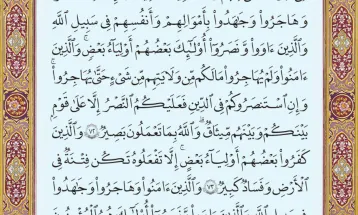 وَهَاجَرُوا۟ وَجَٰهَدُوا۟ بِأَمْوَٰلِهِمْ وَأَنفُسِهِمْ فِى سَبِيلِ ٱللَّهِ
وَٱلَّذِينَ ءَاوَوا۟ وَّنَصَرُوٓا۟ أُو۟لَٰٓئِكَ بَعْضُهُمْ أَوْلِيَآءُ بَعْضٍ ۚ وَٱلَّذِينَ
ءَامَنُوا۟ وَلَمْ يُهَاجِرُوا۟ مَا لَكُم مِّن وَلَٰيَتِهِم مِّن شَىْءٍ حَتَّىٰ يُهَاجِرُوا۟ ۚ
وَإِنِ ٱسْتَنصَرُوكُمْ فِى ٱلدِّينِ فَعَلَيْكُمُ ٱلنَّصْرُ إِلَّا عَلَىٰ قَوْمٍۭ
بَيْنَكُمْ وَبَيْنَهُم مِّيثَٰقٌ ۗ وَٱللَّهُ بِمَا تَعْمَلُونَ بَصِيرٌ ٧٢ وَٱلَّذِينَ
كَفَرُوا۟ بَعْضُهُمْ أَوْلِيَآءُ بَعْضٍ ۚ إِلَّا تَفْعَلُوهُ تَكُن فِتْنَةٌ فِى
ٱلْأَرْضِ وَفَسَادٌ كَبِيرٌ ٧٣ وَٱلَّذِينَ ءَامَنُوا۟ وَهَاجَرُوا۟ وَجَٰهَدُوا۟